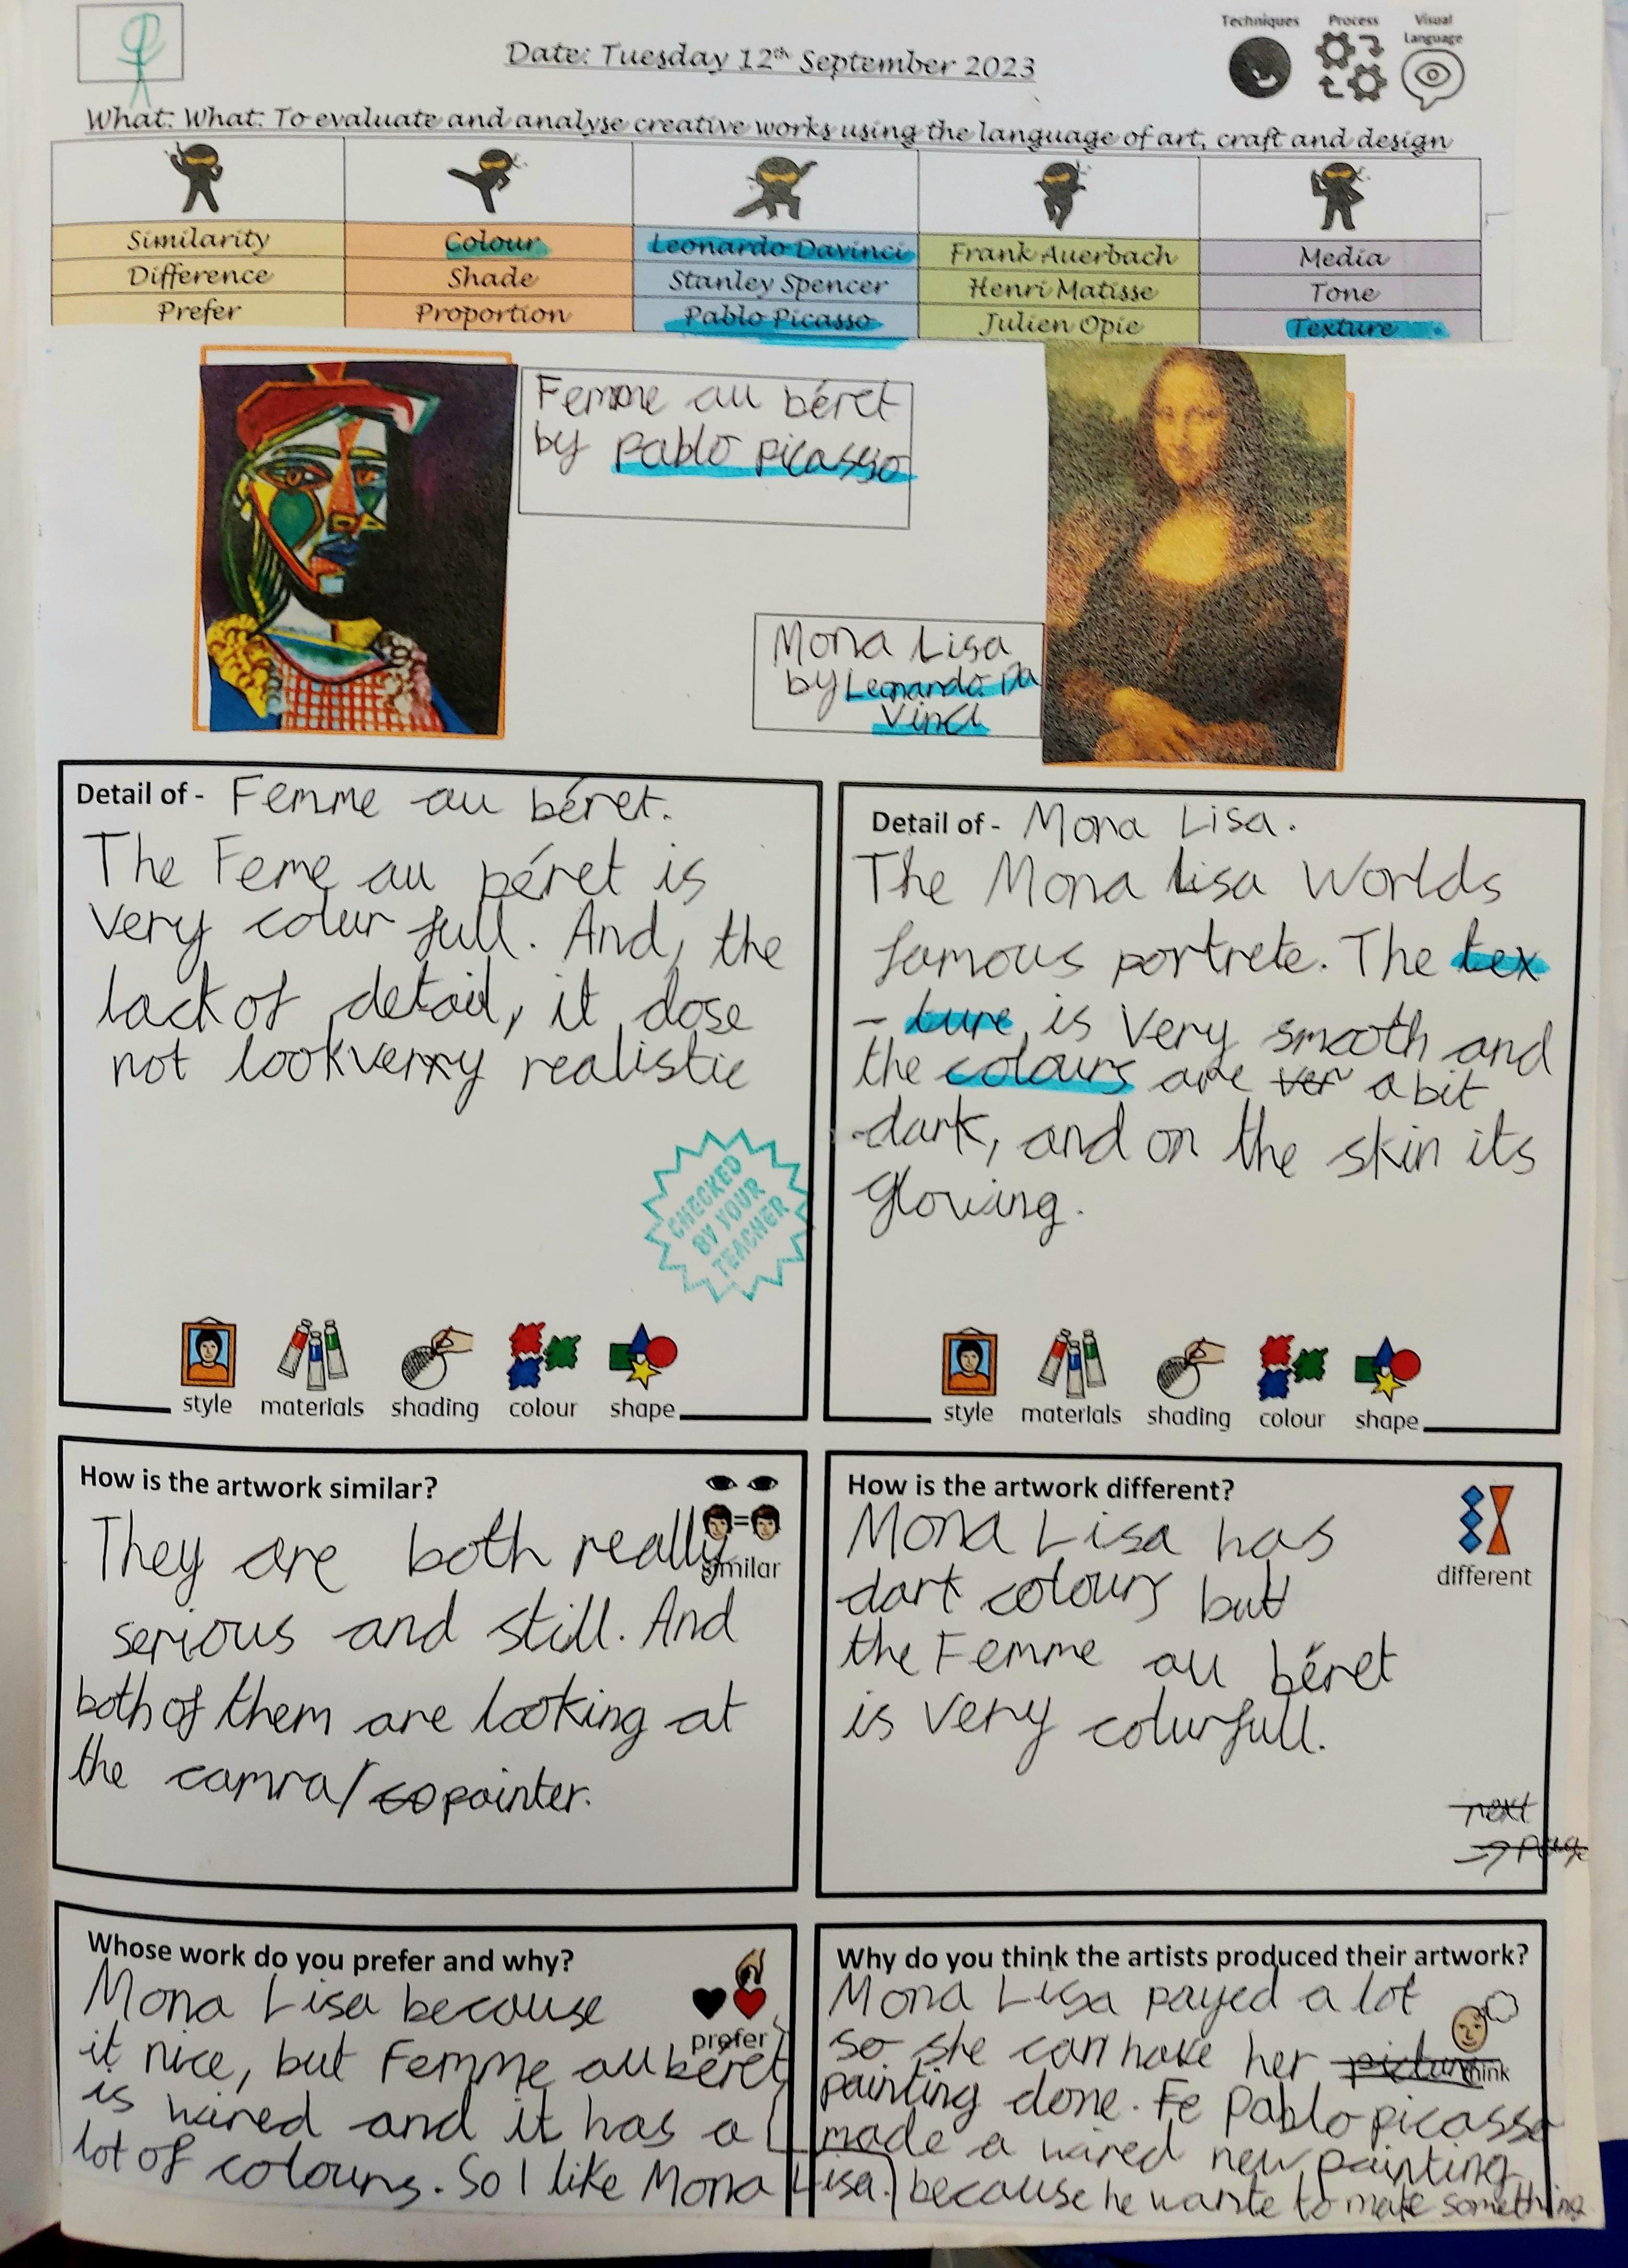 Techniques Process Visual Language
Date: Tuesday 12th September 2023
What: What: To evaluate and analyse creative works using the language of art, craft and design
Similarity Colour Leonardo Davinci Frank Auerbach Media
Difference Shade Stanley Spencer Henri Matisse Tone
Prefer Proportion Pablo Picasso Julien Opie Texture
Femme au béret
by pablo picasso
Mona Lisa
by Leonardo Da
Vinci
Detail of - Femme au béret.
The Feme au béret is
very colur full. And, the
lack of detail, it dose
not look verry realistic
CHECKED
BY YOUR
TEACHER
style materials shading colour shape
Detail of - Mona Lisa.
The Mona Lisa Worlds
famous portrete. The tex
- ture is very smooth and
the colours are ver a bit
dark, and on the skin its
glowing.
style materials shading colour shape
How is the artwork similar?
similar
They are both really
serious and still. And
both of them are looking at
the camra/co painter.
How is the artwork different?
different
Mona Lisa has
dark colours but
the Femme au béret
is very colurfull.
next
→ page
Whose work do you prefer and why?
prefer
Mona Lisa because
it nice, but Femme au béret
is wired and it has a
lot of colours. So I like Mona Lisa.
Why do you think the artists produced their artwork?
think
Mona Lisa payed a lot
so she can have her picture
painting done. Fe Pablo picasso
made a wired new painting
because he wante to make something